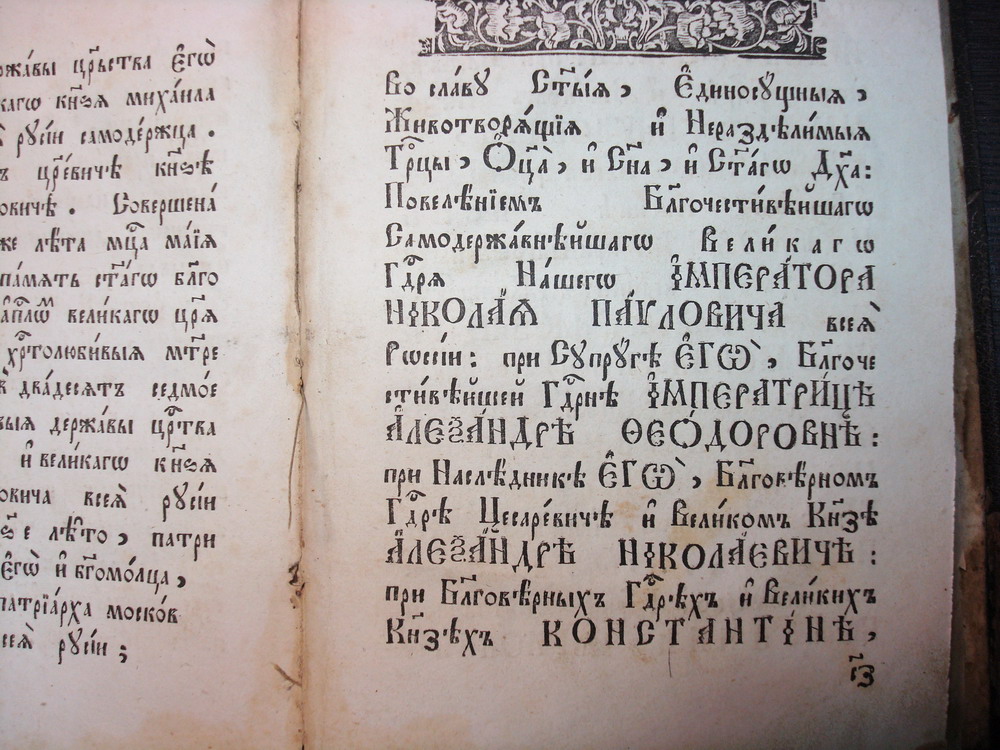 ржа́вы црⷭ҇тва є҆гѡ̀
кагѡ кн҃зѧ михаи́ла
рꙋсі́и самоде́ржца .
ъ црⷭ҇е́вичѣ кн҃зѣ
овичѣ . Соверше́на
же лѣ́та мцⷭ҇а ма́їѧ
па́мѧть ст҃а́гѡ бл҃го
а҆пⷭ҇лѡмъ вели́кагѡ цр҃ѧ̀
хрⷭ҇толюби́выѧ мт҃ре
два́десѧтъ седмо́е
выѧ держа́вы црⷭ҇тва
и҆ вели́кагѡ кн҃зѧ
овича всеѧ̀ рꙋсі́и
е лѣ́то , патри
є҆гѡ̀ и҆ бг҃омо́лца ,
патрїа́рха моско́в
сеѧ̀ рꙋсі́и ;
Во сла́вꙋ Ст҃ы́ѧ , Є҆диносꙋ́щныѧ ,
Животворѧ́щїѧ и҆ Нераздѣли́мыѧ
Трⷪ҇цы , Ѻ҆ц҃а̀ , и҆ Сн҃а , и҆ Ст҃а́гѡ Дх҃а :
Повелѣ́нїемъ Бл҃гочести́вѣйшагѡ
Самодержа́внѣйшагѡ Вели́кагѡ
Гдⷭ҇рѧ На́шегѡ І҆МПЕРА́ТОРА
НІКОЛА́Ѧ ПА́ѴЛОВИЧА всеѧ̀
Рѡссі́и : при Сꙋпрꙋ́гѣ Є҆ГѠ̀ , Бл҃гоче
сти́вѣйшей Гдⷭ҇рнѣ І҆МПЕРАТРИ́ЦѢ
А҆ЛЕѮА́НДРѢ ѲЕѺ́ДОРОВНѢ :
при Наслѣ́дникѣ Є҆ГѠ̀ , Бл҃говѣ́рномъ
Гдⷭ҇рѣ Цесаре́вичѣ и҆ Вели́комъ Кн҃зѣ
А҆ЛЕѮА́НДРѢ НІКОЛА́ЕВИЧѢ :
при Бл҃говѣ́рныхъ Гдⷭ҇рѣхъ и҆ Вели́кихъ
Кн҃зѣхъ КОНСТАНТІ́НѢ ,